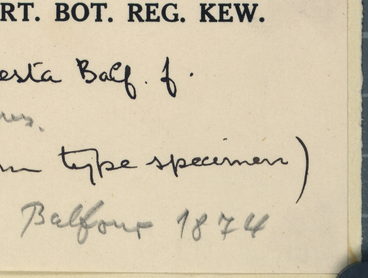 RT. BOT. REG. KEW.
esta Balf. f.
type specimen)
Balfour 1874